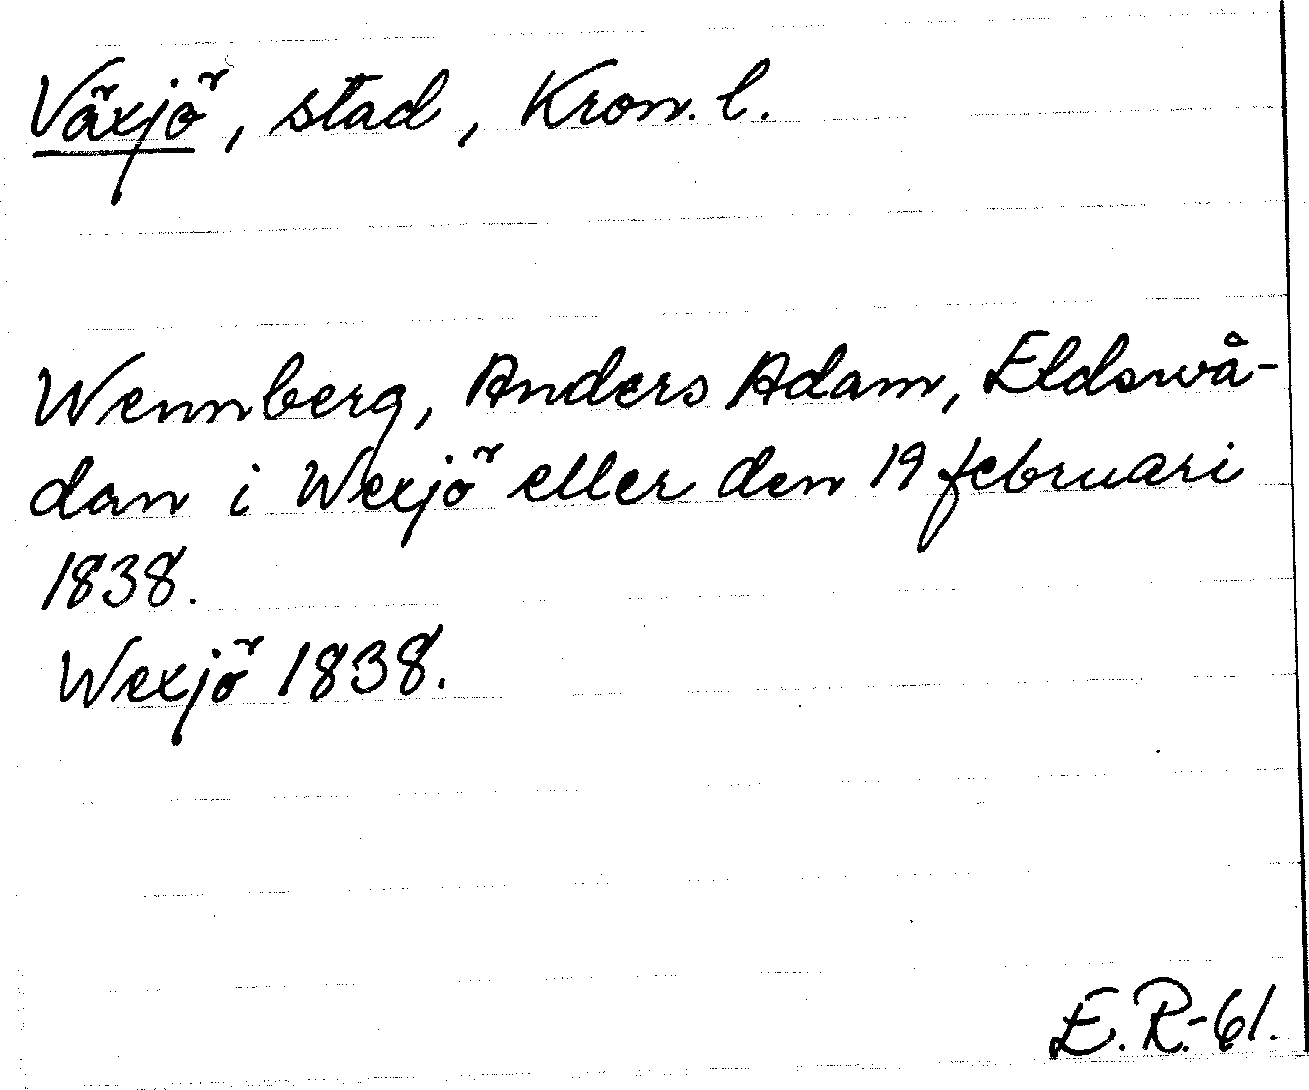 Växjö, stad, Kron. l.
Wennberg, Anders Adam, Eldswå-
dan i Wexjö eller den 19 februari
1838.
Wexjö 1838.
E.R.-61.